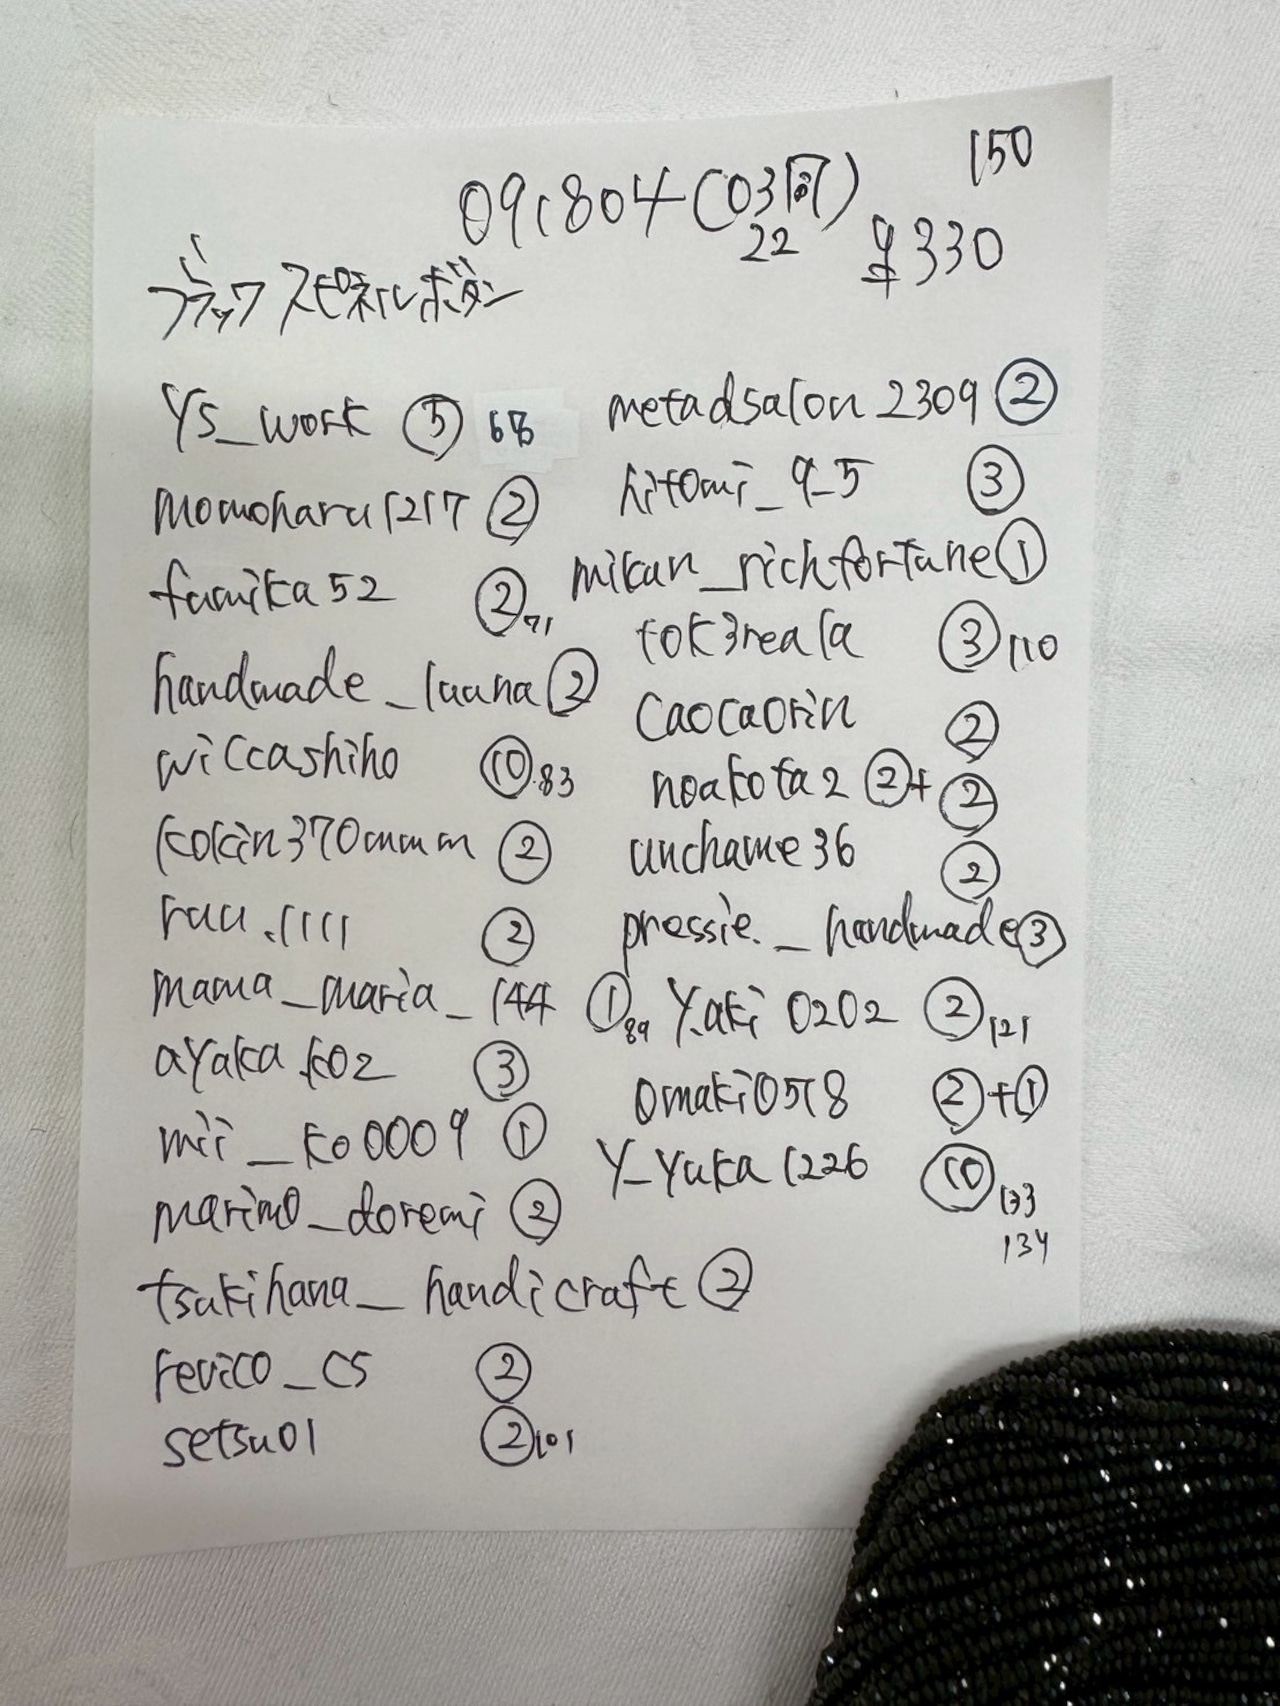 150
091804(03同)
22
¥330
ブラックスピネルボタン
YS_work ⑤ 68
momoharu1217 ②
fumika52 ② 71
handmade_luuna ②
wiccashiho ⑩ 83
kokin370mmm ②
ruu.1111 ②
mama_maria_144 ① 89
ayaka.k02 ③
mii_ko0009 ①
marimo_doremi ②
tsukihana_handicraft ②
revico_cs ②
setsu01 ② 101
metadsalon2309 ②
hitomi_9_5 ③
mikan_richfortune ①
tok3reala ③ 110
caocaorin ②
noakota2 ②+②
unchame36 ②
pressie._handmade ③
Y.aki0202 ② 121
omaki0518 ②+①
Y_Yuka1226 ⑩ 133
134